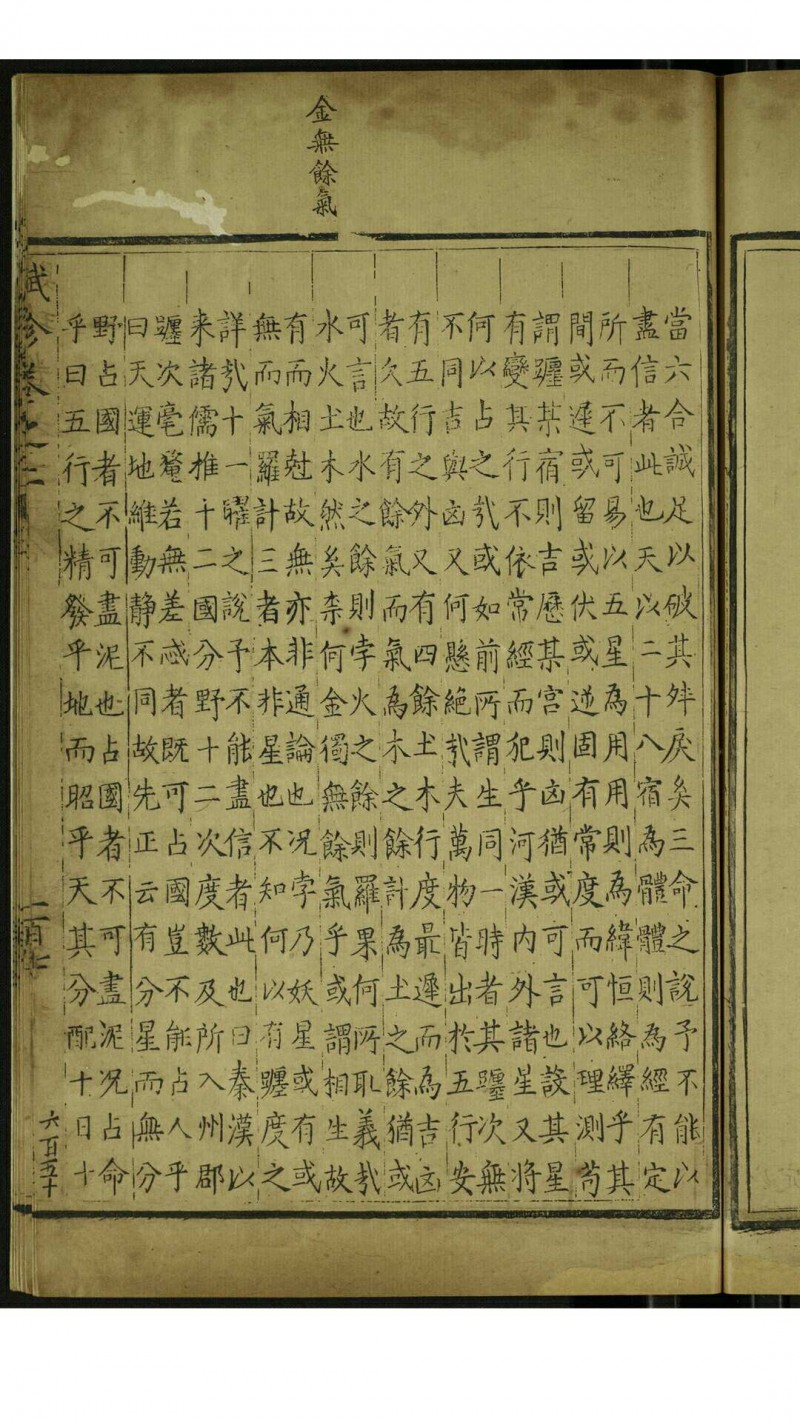 金無餘氣
當六合誠足以破其舛戾矣三命之說予不能以
盡信者此也天以二十八宿為體體則為經有定
所而不可易以五星為用用則為緯恒絡繹乎其
間或遲或留或伏或逆固有常度而可以理測苟
謂躔某宿則吉歷某宮則凶猶或可言也設其星
有變其行不依常經而犯乎河漢內外諸星又將
何以占之㢤或如前所謂生同一時者其躔次無
不同吉與凶又何懸絕㢤夫萬物皆出於五行安
有五行之外又有四餘土木行度最遲而為吉凶
者久故有餘氣而氣為木之餘計為土之餘猶或
可言也水之餘則孛火之餘則羅果何所取義㢤
水火土木然矣柰何金獨無餘氣乎或謂相生故
有而相尅故無亦非通論也况孛乃妖星或有或
無而氣羅計三者本非星也不知何以有躔度之
詳㢤十一曜之說予不能盡信者此也曰秦漢以
来諸儒推十二國分野十二次度數及所入州郡
躔次毫釐若無差忒者既可占國豈不能占人乎
曰天運地維動靜不同故先正云有分星而無分
野占國者不可盡泥也占國者不可盡泥况占命
乎曰五行之精發乎地而昭乎天其分配十日十
六百五十